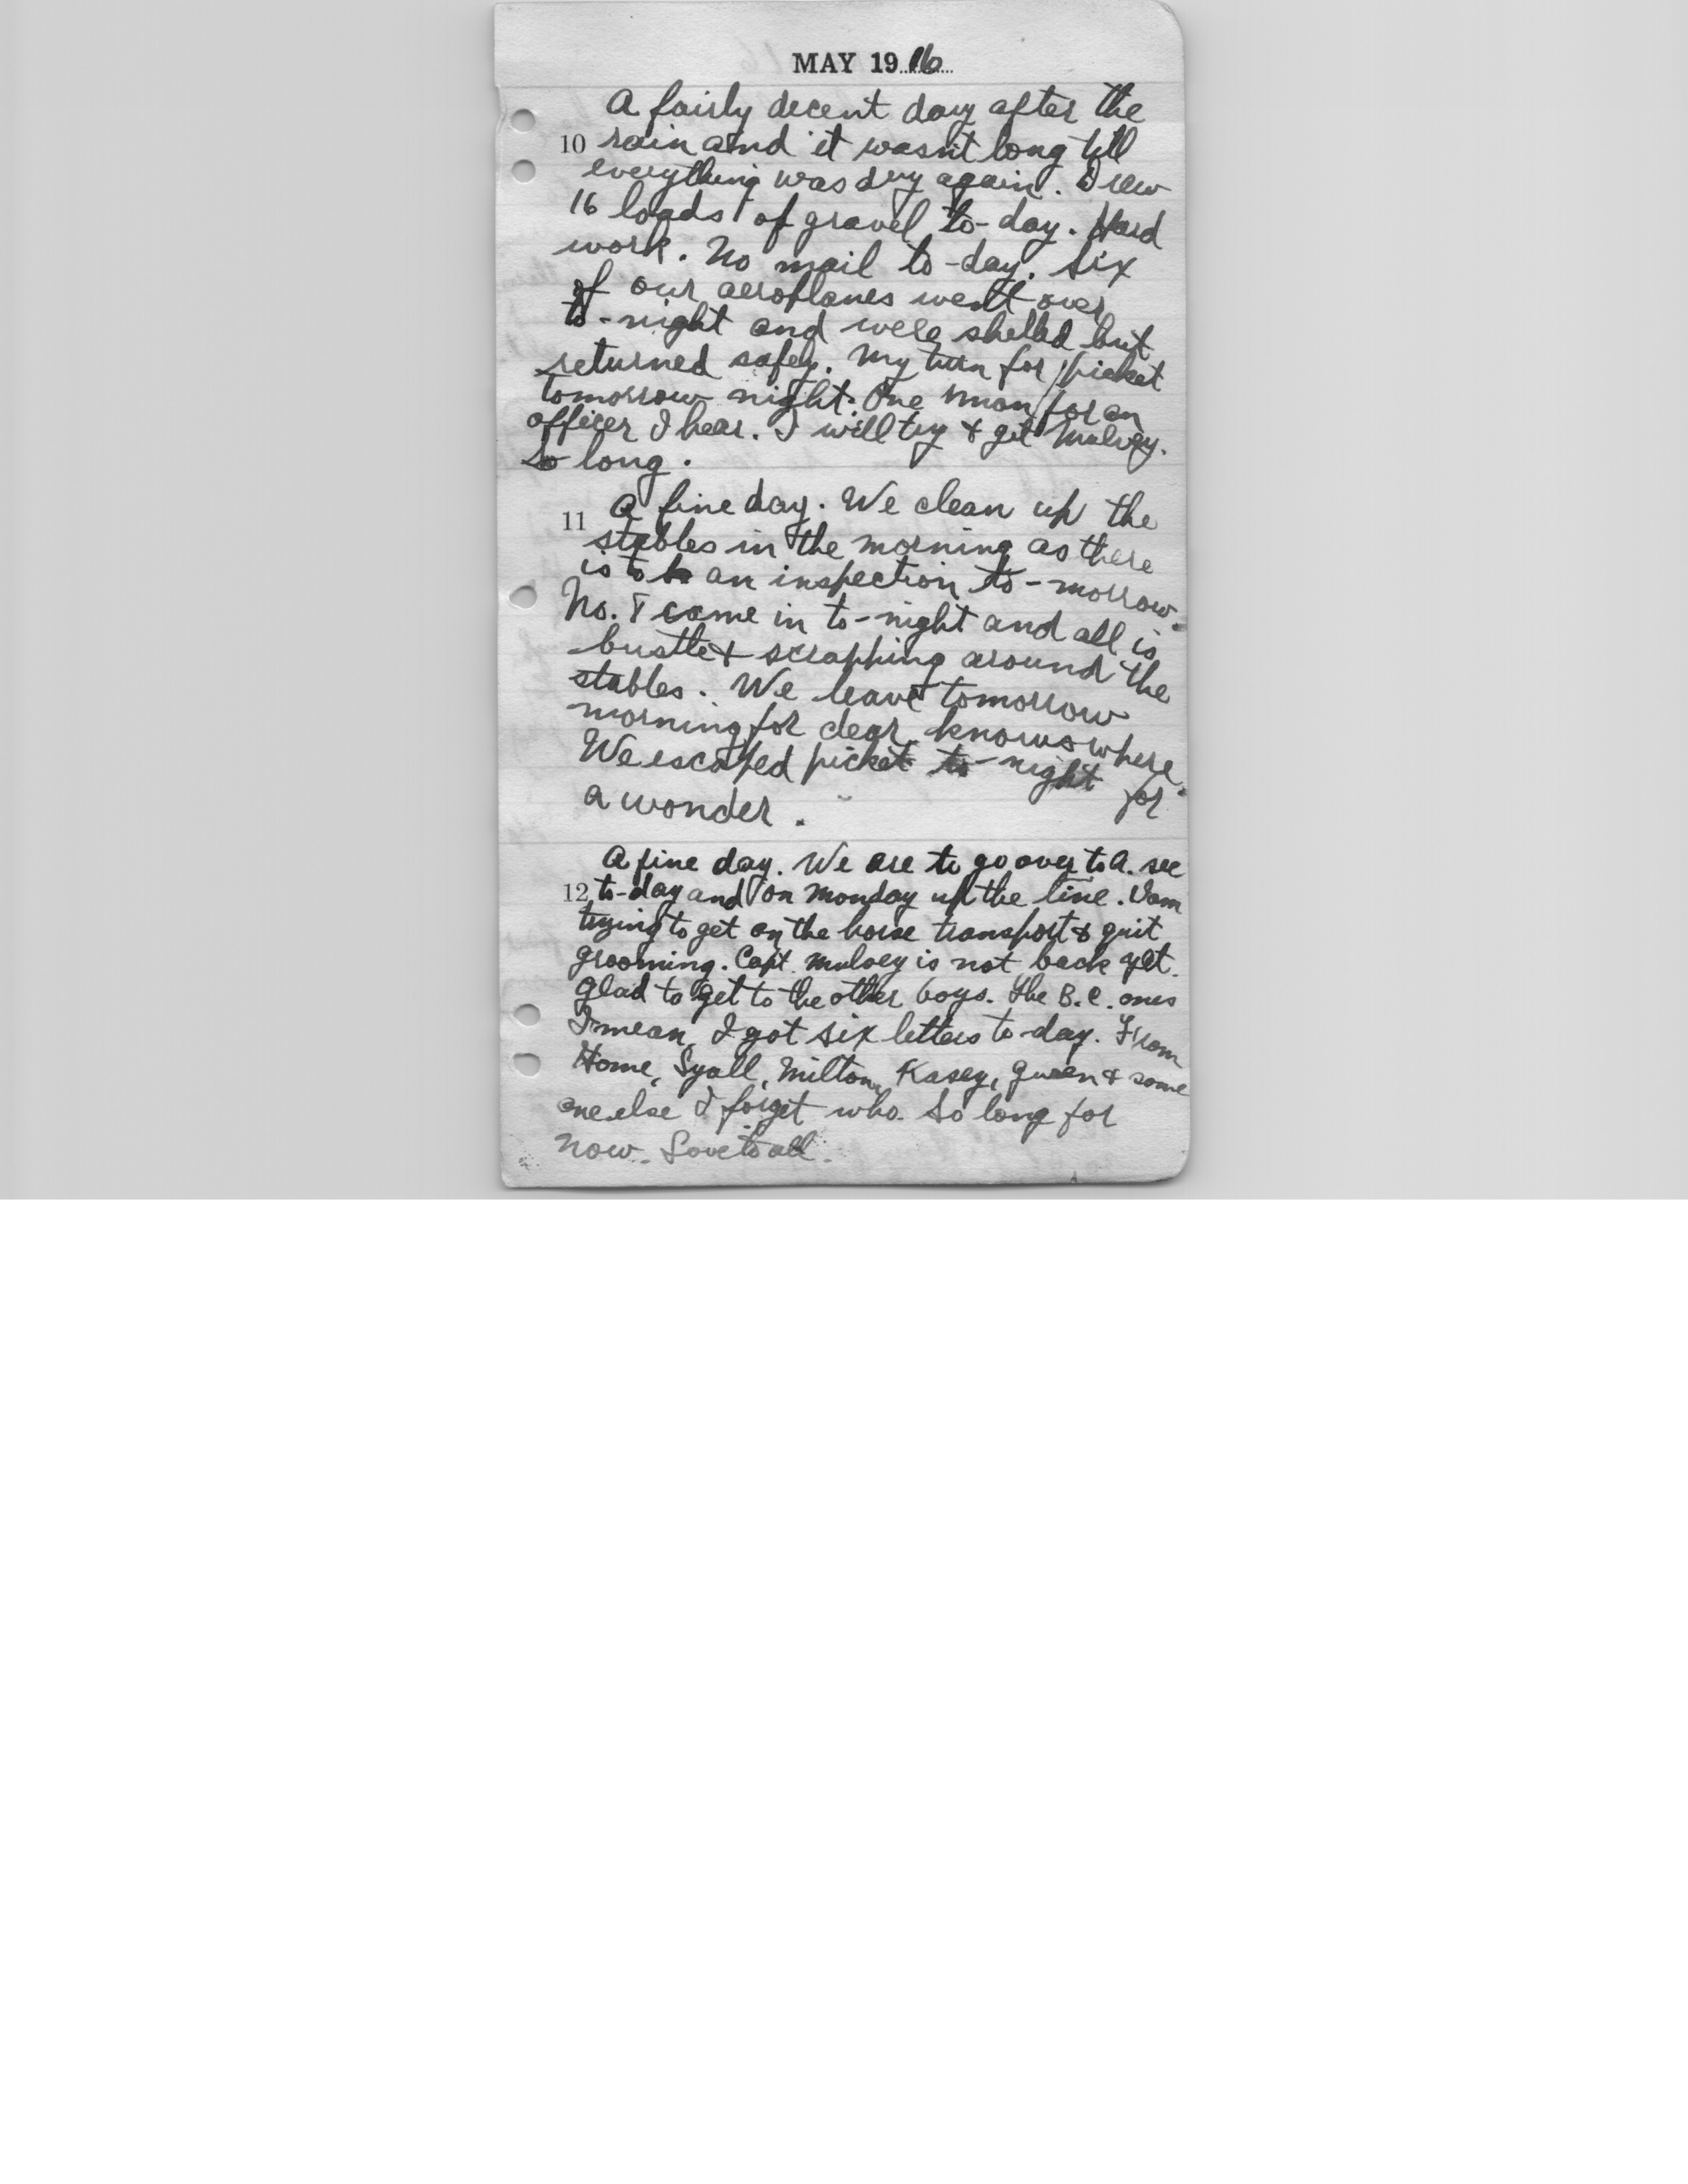 MAY 1916
A fairly decent day after the
10 rain and it wasn't long till
everything was dry again. Drew
16 loads of gravel to-day. Hard
work. No mail to-day. Six
of our aeroplanes went over
to-night and were shelled but
returned safely. My turn for picket
tomorrow night. One man for an
officer I hear. I will try & get Mulvey.
So long.
A fine day. We clean up the
11
stables in the morning as there
is to be an inspection to-morrow.
No. 8 came in to-night and all is
bustle & scrapping around the
stables. We leave tomorrow
morning for dear knows where.
We escaped picket to-night for
a wonder.
A fine day. We are to go over to A. sec
12 to-day and on Monday up the line. I am
trying to get on the horse transport & quit
grooming. Capt. Mulvey is not back yet.
Glad to get to the other boys. The B.C. ones
I mean. I got six letters to-day. From
Home, Syall, Milton, Kasey, Gwen & some
one else I forget who. So long for
now. Love to all.